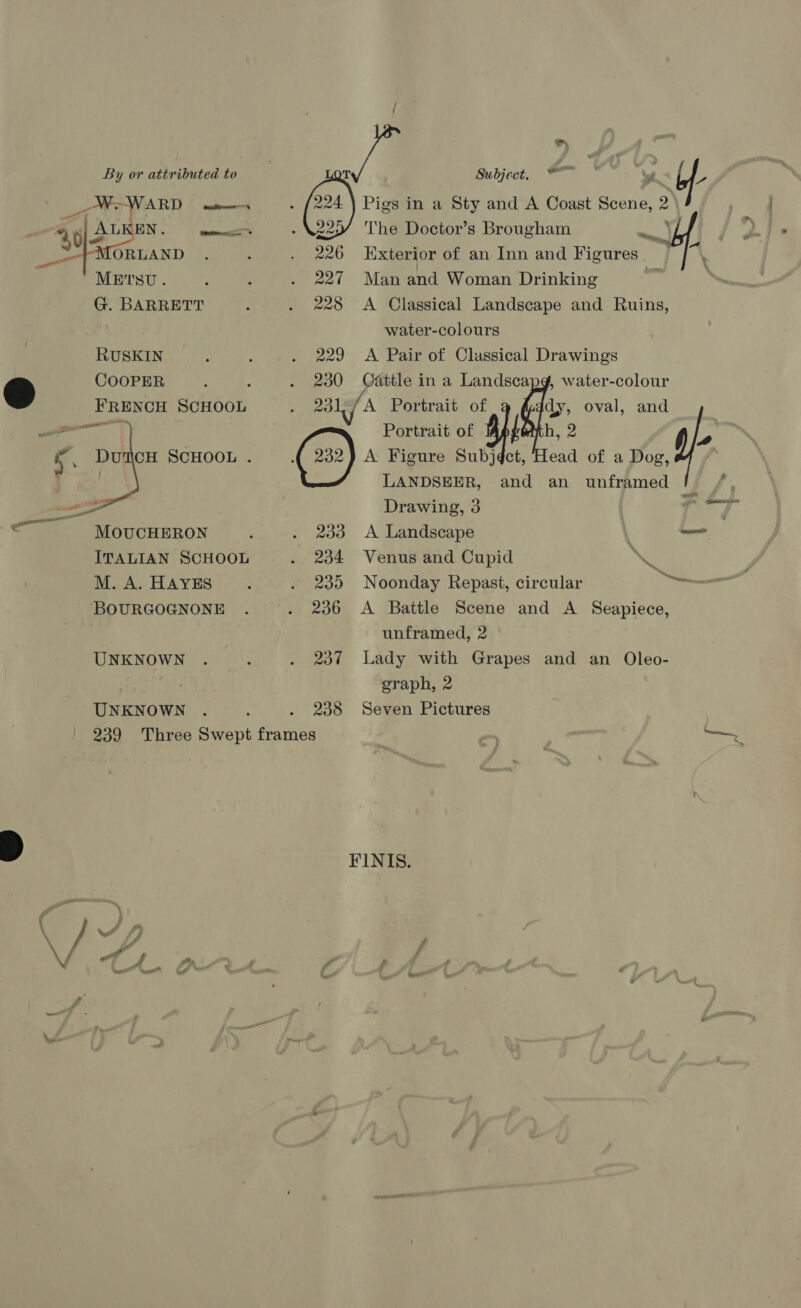 By or attributed to LOT Subject.
W. WARD . 224 Pigs in a Sty and A Coast Scene, 2
ALKEN. . 225 The Doctor's Brougham
MORLAND . . . 226 Exterior of an Inn and Figures
METSU . . . 227 Man and Woman Drinking
G. BARRETT . . 228 A Classical Landscape and Ruins,
water-colours
RUSKIN . . . 229 A Pair of Classical Drawings
COOPER . . . 230 Cattle in a Landscape, water-colour
FRENCH SCHOOL . 231 A Portrait of a Lady, oval, and
Portrait of 2
DUTCH SCHOOL . . 232 A Figure Subject, Head of a Dog,
LANDSEER, and an unframed
Drawing, 3
MOUCHERON . . 233 A Landscape
ITALIAN SCHOOL . 234 Venus and Cupid
M. A. HAYES . . 235 Noonday Repast, circular
BOURGOGNONE . . 236 A Battle Scene and A Seapiece,
unframed, 2
UNKNOWN . . . 237 Lady with Grapes and an Oleo-
graph, 2
UNKNOWN . . . 238 Seven Pictures
239 Three Swept frames
FINIS.